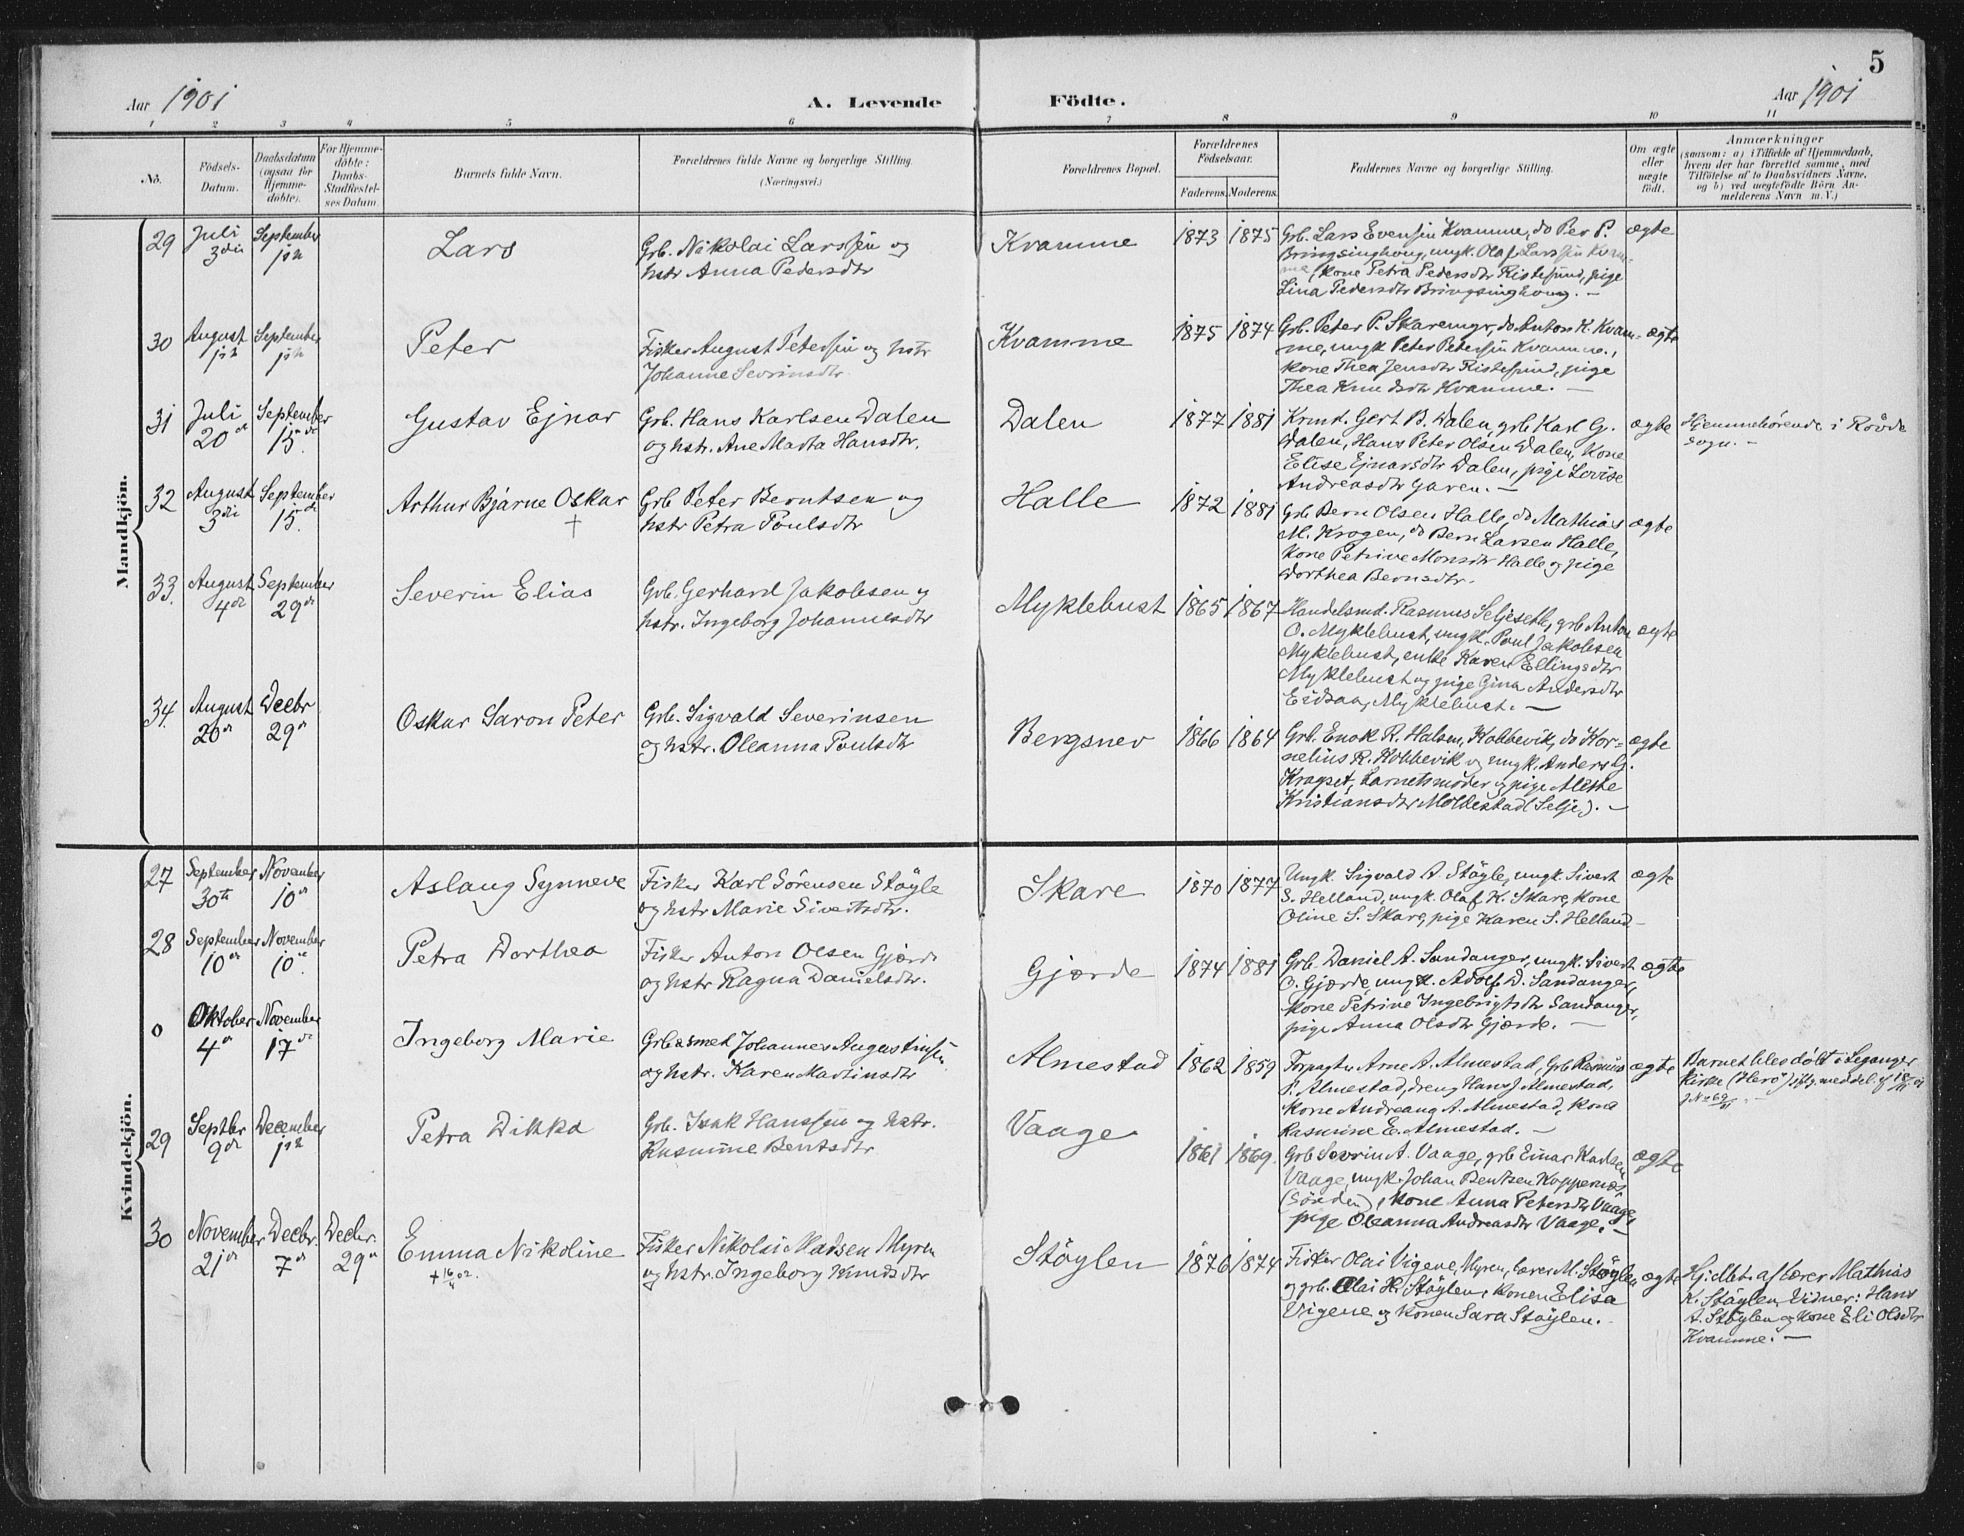 5
Aar 1901
A. Levende
Födte.
Aar 1901
1 2 3 4 5 6 7 8 9 10 11
No.
Födsels-
Datum.
Daabsdatum
(ogsaa for
Hjemme-
döbte).
For Hjemme-
döbte:
Daabs-
Stadfæstel-
ses Datum.
Barnets fulde Navn.
Forældrenes fulde Navne og borgerlige Stilling.
(Næringsvei.)
Forældrenes Bopæl.
Forældrenes
Födselsaar.
Faderens. Moderens.
Faddernes Navne og borgerlige Stilling.
Om ægte
eller
uægte
födt.
Anmærkninger
(saasom: a) i Tilfælde af Hjemmedaab,
hvem der har forrettet samme, med
Tilföielse af to Daabsvidners Navne,
og b) ved uægtefödte Börn An-
melderens Navn m. V.)
Mandkjön.
29
Juli
3die
September
1ste
Lars
Grb. Nikolai Larssen og
hstr Anna Pedersdtr
Kvamme
1873 1875
Grb. Lars Evensen Kvamme, do Per P.
Bringsinghoug, ungk. Olaf Larssen Kvam-
me, kone Petra Pedersdtr Ristesund, pige
Lina Pedersdtr Bringsinghoug. —
ægte
30
August
September
Peter
Fisker August Petersen og hstr
Johanne Sevrinsdtr.
Kvamme
1875 1874
Grb. Peter P. Skaremyr, do Anton K. Kvam-
me, ungk Peter Petersen Kvamme,
kone Thea Jensdtr Ristesund, pige
Thea Knudsdtr Kvamme. —
ægte
31
Juli
20de
September
15de
Gustav Ejnar
Grb. Hans Karlsen Dalen
og hstr. Ane Marta Hansdtr.
Dalen
1877 1881
Krmd. Gert B. Dalen, grb Karl G.
Dalen, Hans Peter Olsen Dalen, Kone
Elise Ejnarsdtr Dalen, pige Lovise
Andreasdtr Garen. —
ægte
Hjemmehörende i Rövde
sogn. —
32
August
3die
September
15de
Arthur Bjarne Oskar
†
Grb Peter Berntsen og
hstr Petra Poulsdtr
Halle
1872 1881
Grb Bern Olsen Halle, do Mathias
M. Krogen, do Bern Larsen Halle,
Kone Petrine Monsdtr Halle og pige
Dorthea Bernsdtr.
ægte
33.
August
4de
September
29de
Severin Elias
Grb. Gerhard Jakobsen og
hstr. Ingeborg Johannesdtr
Myklebust
1865 1867
Handelsmd. Rasmus Seljeseth, grb Anton
O. Myklebust, ungk. Poul Jakobsen
Myklebust, enke Karen Ellingsdtr
Myklebust og pige Gina Andersdtr
Eidsaa, Myklebust. —
ægte
34.
August
20de
Decbr
29de
Oskar Saron Peter
Grb. Sigvald Severinsen
og hstr. Oleanna Poulsdtr
Bergsnev
1866 1864
Grb. Enok R. Halsen, Kobbevik, do Kor-
nelius R. Kobbevik og ungk. Anders G.
Kragset, barnets moder og pige Alette
Kristiansdtr Moldestad (Selje). —
ægte
Kvindekjön.
27
September
30te
November
10de
Aslaug Synneve
Fisker Karl Sörensen Stöyle
og hstr Marie Sivertsdtr.
Skare
1870 1877
Ungk. Sigvald A. Stöyle, ungk. Sivert
S. Helland, ungk. Olaf K. Skare, kone
Oline S. Skare, pige Karen S. Helland —
ægte
28
September
10de
November
10de
Petra Dorthea
Fisker Anton Olsen Gjærde
og hstr Ragna Danielsdtr.
Gjærde
1874 1881
Grb. Daniel A. Sandanger, ungk. Sivert
O. Gjærde, ungk. Adolf D. Sandanger,
kone Petrine Ingebrigtsdtr Sandanger,
pige Anna Olsdtr Gjærde. —
ægte
0
Oktober
4de
November
17de
Ingeborg Marie
Grb & smed Johannes Augustinsen
og hstr. Karen Martinsdtr
Almestad
1862 1859
Forpagter Arne A. Almestad, Grb Rasmus
Almestad, dreng Hans J. Almestad,
Kone Andreang A. Almestad, kone
Rasmine E. Almestad. —
ægte
Barnet blev döbt i Leganger
Kirke (Herö)
29
Septbr
9de
December
1ste
Petra Dikka
Grb. Isak Hanssen og hstr.
Rasmine Bentsdtr
Vaage
1861 1869.
Grb Sevrin A. Vaage, grb Einar Kadsen
Vaage, ungk. Johan Bentsen Koppernæs
(Sönden), kone Anna Petersdtr Vaage,
pige Oleanna Andreasdtr Vaage. —
ægte
30
November
21de
Decbr.
7de
Decbr.
29de
Emma Nikoline
† 16/4 02.
Fisker Nikolai Madsen Myren
og hstr. Ingeborg Knudsdtr
Stöylen
1876 1874
Fisker Olai Vigene, Myren, lærer M. Stöylen
og grb. Olai H. Stöylen, Konen Elisa
Vigene og Konen Sara Stöylen.
ægte
Hj.döbt af lærer Mathias
K. Stöylen, Vidner: Hans
A. Stöylen og kone Eli Olsdtr
Kvamme. —